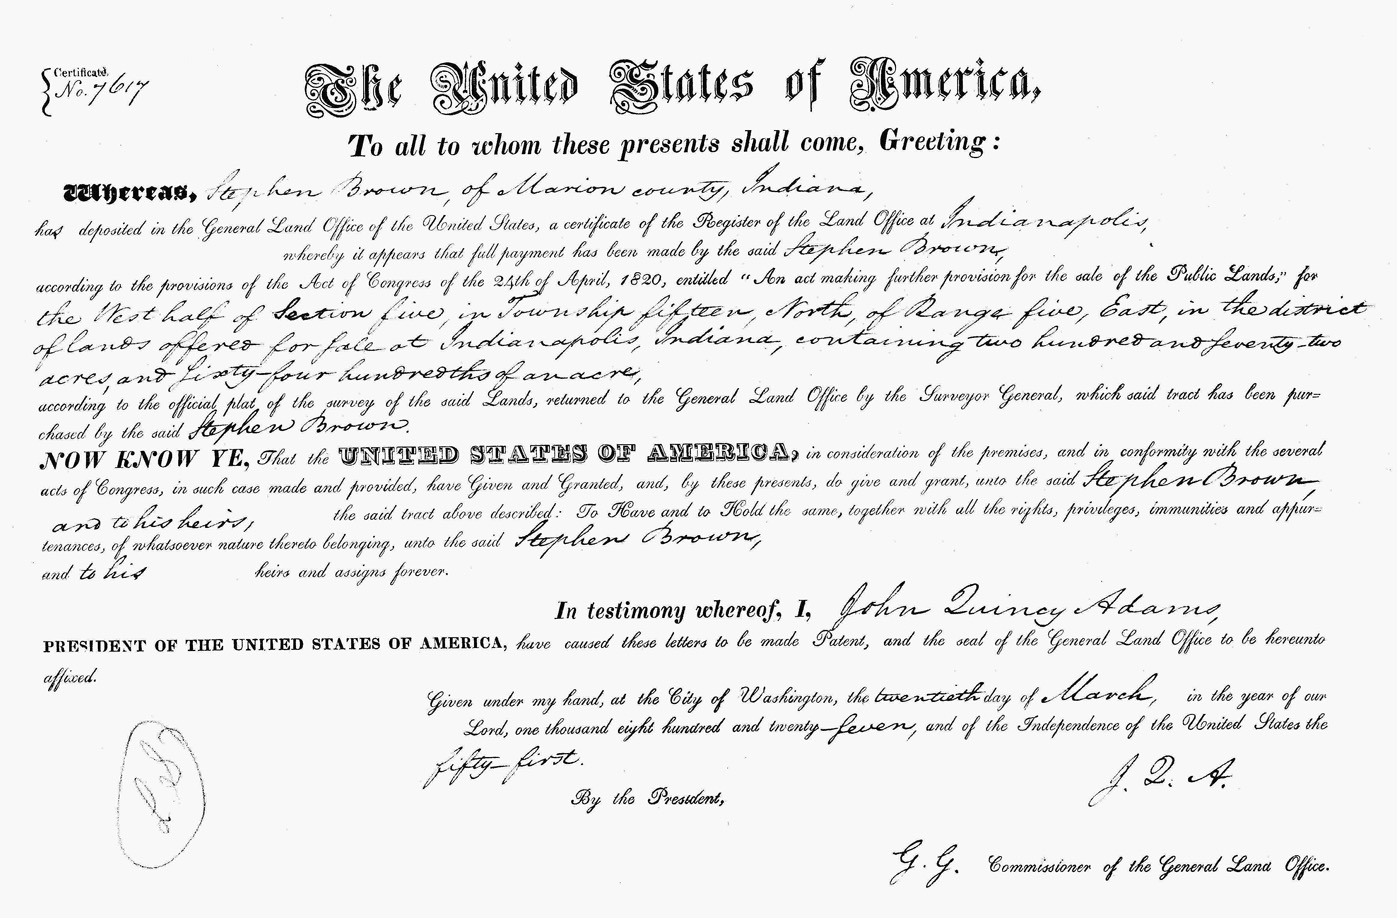 Certificate
No. 7617
The United States of America,
To all to whom these presents shall come, Greeting:
Whereas, Stephen Brown, of Marion county, Indiana,
has deposited in the General Land Office of the United States, a certificate of the Register of the Land Office at Indianapolis,
whereby it appears that full payment has been made by the said Stephen Brown,
according to the provisions of the Act of Congress of the 24th of April, 1820, entitled "An act making further provision for the sale of the Public Lands," for
the West half of Section five, in Township fifteen, North, of Range five, East, in the district
of lands offered for sale at Indianapolis, Indiana, containing two hundred and seventy-two
acres, and sixty-four hundredths of an acre,
according to the official plat of the survey of the said Lands, returned to the General Land Office by the Surveyor General, which said tract has been pur=
chased by the said Stephen Brown.
NOW KNOW YE, That the UNITED STATES OF AMERICA, in consideration of the premises, and in conformity with the several
acts of Congress, in such case made and provided, have Given and Granted, and, by these presents, do give and grant, unto the said Stephen Brown,
and to his heirs, the said tract above described: To Have and to Hold the same, together with all the rights, privileges, immunities and appur=
tenances, of whatsoever nature thereto belonging, unto the said Stephen Brown,
and to his heirs and assigns forever.
In testimony whereof, I, John Quincy Adams,
PRESIDENT OF THE UNITED STATES OF AMERICA, have caused these letters to be made Patent, and the seal of the General Land Office to be hereunto
affixed.
Given under my hand, at the City of Washington, the twentieth day of March, in the year of our
Lord, one thousand eight hundred and twenty-seven, and of the Independence of the United States the
fifty-first.
J. Q. A.
By the President,
L.S.
G. G. Commissioner of the General Land Office.